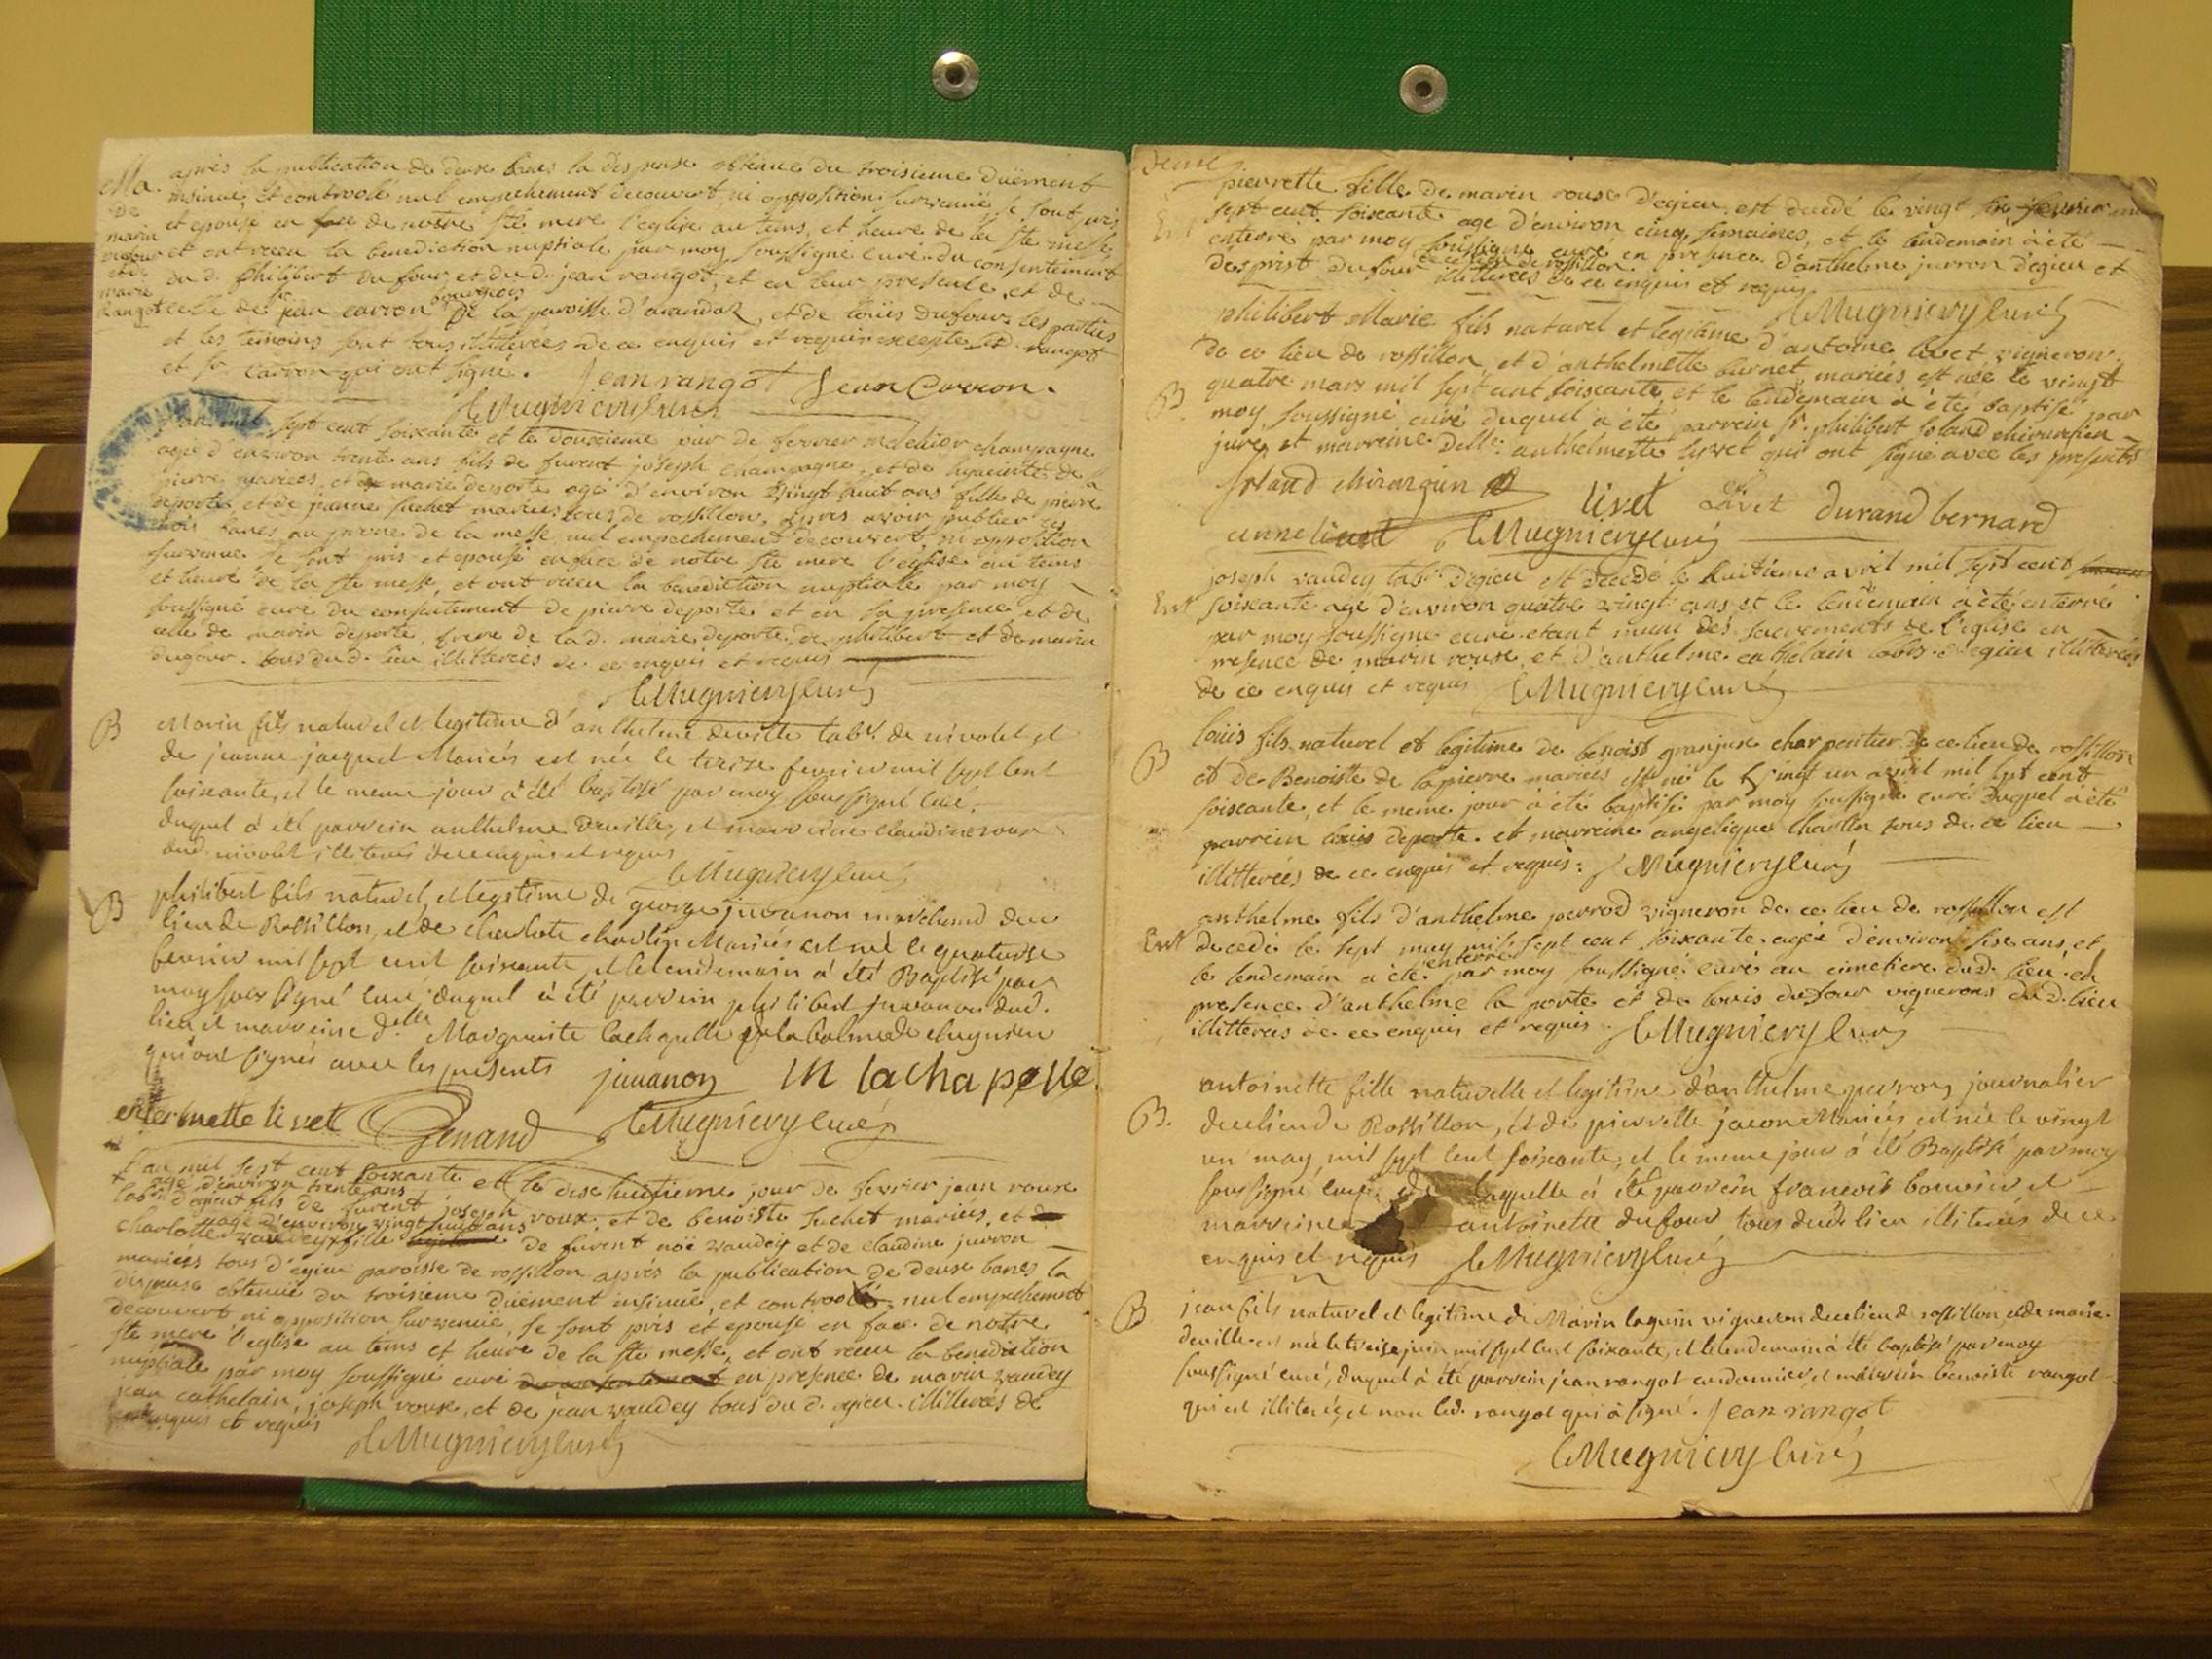 Ma.
de
marin
dufour
et de
marie
Rangot
après la publication de deuse bancs la dispense obtenue du troisieme duëment
insinué, et controolé nul empechement decouvert, ni opposition survenuë se sont pris
et epousé en face de notre ste mere l'eglise au tems, et heure de la ste messe
et ont receu la benediction nuptiale par moy soussigné curé du consentiment
du d. philibert du four, et du d. jean rangot, et en leur presence, et de
celle de sr jean carron bourgeois de la paroisse d'arandaz, et de loüis dufour les parties
et les temoins sont tous illitterées de ce enquis et requis excepte led. rangot
et sr. Carron qui ont signé. Jean rangot Jean Carron.
leMugnieryluré
L'an mil sept cent soixante et le douzieme jour de fevrier melchior champagne
agé d'environ trente ans fils de furent joseph champagne, et de hyacinte de la
pierre mariées, et marie deporte agé d'environ vingt huit ans fille de pierre
deporte, et de jeanne suchet mariées tous de rossillon, apres avoir publier les
trois bancs au prone de la messe, nul empechement decouvert ni opposition
survenue se sont pris et epousé en face de notre ste mere l'eglise au tems
et heure de la ste messe, et ont receu la benediction nuptiale par moy
soussigné curé du consentement de pierre deporte et en sa presence et de
celle de marin deporte, frere de la d. marie deporte, de philibert et de marin
dufour. tous du d. lieu illitterées de ce enquis et requis
leMugnierycuré
B
Marin fils naturel et legitime d'anthelme deville labr. de nivolet et
de jeanne jacquet Mariés est née le treize fevrier mil sept cent
soixante, et le meme jour à été baptisé par moy soussigné curé,
duquel à été parrein anthelme deville, et marreine claudine roux
dud. nivolet illiterés de ce enquis et requis
leMugnierycuré
B
philibert fils naturel, et legitime de george juvanon marchand de ce
lieu de Rossillon, et de charlote charlin Mariés est né le quatorze
fevrier mil sept cent soixante, et le lendemain à été Baptisé par
moy soussigné curé, duquel à été parrein philibert juvanon dud.
lieu et marreine delle Marguerite lachapelle de la balme de chugnieu
qui ont signés avec les présents juuanon m lachapelle
entermette livet Genand leMugnierycuré
L'an mil sept cent soixante et le dise huitieme jour de fevrier jean rouse
agé d'environ trente ans
labr. d'egieu fils de furent joseph roux, et de benoiste suchet mariés, et
agé d'environ vingt huit ans
Charlotte vaudey fille de furent noë vaudey et de claudine jurron
mariées tous d'egieu paroisse de rossillon après la publication de deuse bancs la
dispense obtenuë du troisieme duëment insinuë, et controolé, nul empechement
decouvert ni opposition survenuë, se sont pris et epousé en face de notre
ste mere l'eglise au tems et heure de la ste messe, et ont receu la benediction
nuptiale par moy soussigné curé du consentement en presence de marin vaudey
jean cathelain, joseph rouse, et de jean vaudey tous du d. egieu. illitterées de
ce enquis et requis
leMugnierycuré
deuse
Ent
pierrette fille de marin rouse d'egieu, est decedé le vingt six fevrier mil
sept cent soiscante age d'environ cinq semaines, et le lendemain à été
enterré par moy soussigné curé en presence d'anthelme jurron d'egieu et
de ce lieu de rossillon
desprist dufour illitterées de ce enquis et requis
leMugnierycuré
B
philibert Marie fils naturel et legitime d'antoine livet vigneron
de ce lieu de rossillon, et d'anthelmette burnet mariées est née le vingt
quatre mars mil sept cent soiscante, et le lendemain à été baptisé par
moy soussigné curé duquel à été parrein sr. philibert soland chirurgien
juré, et marreine Delle. anthelmette livet qui ont signé avec les presents
soland chirurgien livet livet durand bernard
anne livet leMugnierycuré
Ent
joseph vaudey labr. d'egieu est decedé le huitieme avril mil sept cent
soiscante agé d'environ quatre vingt ans, et le lendemain à été enterré
par moy soussigné curé etant muni des sacrements de l'eglise en
presence de marin rouse, et d'anthelme cathelain labrs. d'egieu illitterées
de ce enquis et requis leMugnierycuré
B
loüis fils naturel et legitime de benoist granjuse charpentier de ce lieu de rossillon
et de Benoiste de lapierre mariées est né le vingt un avril mil sept cent
soiscante, et le meme jour à été baptisé par moy soussigné curé duquel à été
parrein loüis deporte. et marreine angelique charlin tous de ce lieu
illitterées de ce enquis et requis: leMugnierycuré
Ent
anthelme fils d'anthelme perrod vigneron de ce lieu de rossillon est
decedé le sept may mil sept cent soixante. agée d'environ sise ans, et
le lendemain a été enterré par moy soussigné curé au cimetiere dud. lieu en
presence d'anthelme la porte et de loüis dufour vignerons du d. lieu
illitterées de ce enquis et requis. leMugnierycuré
B.
antoinette fille naturelle et legitime d'anthelme perron journalier
de ce lieu de Rossillon, et de pierrette jacon Mariés est née le vingt
un may, mil sept cent soixante, et le meme jour à été Baptisé par moy
soussigné curé, de laquelle à été parrein francois bonvin et
marreine antoinette dufour, tous dud. lieu illiterés de ce
enquis et requis leMugnierycuré
B
jean fils naturel et legitime de Marin laguin vigneron de ce lieu de rossillon et de marie.
deville est née le treise juin mil sept cent soixante, et le lendemain à été baptisé par moy
soussigné curé, duquel à été parrein jean rangot cordonnier, et marrein benoiste rangot
qui est illiterée, et non led. rangot qui à signé. Jean rangot
leMugnierycuré